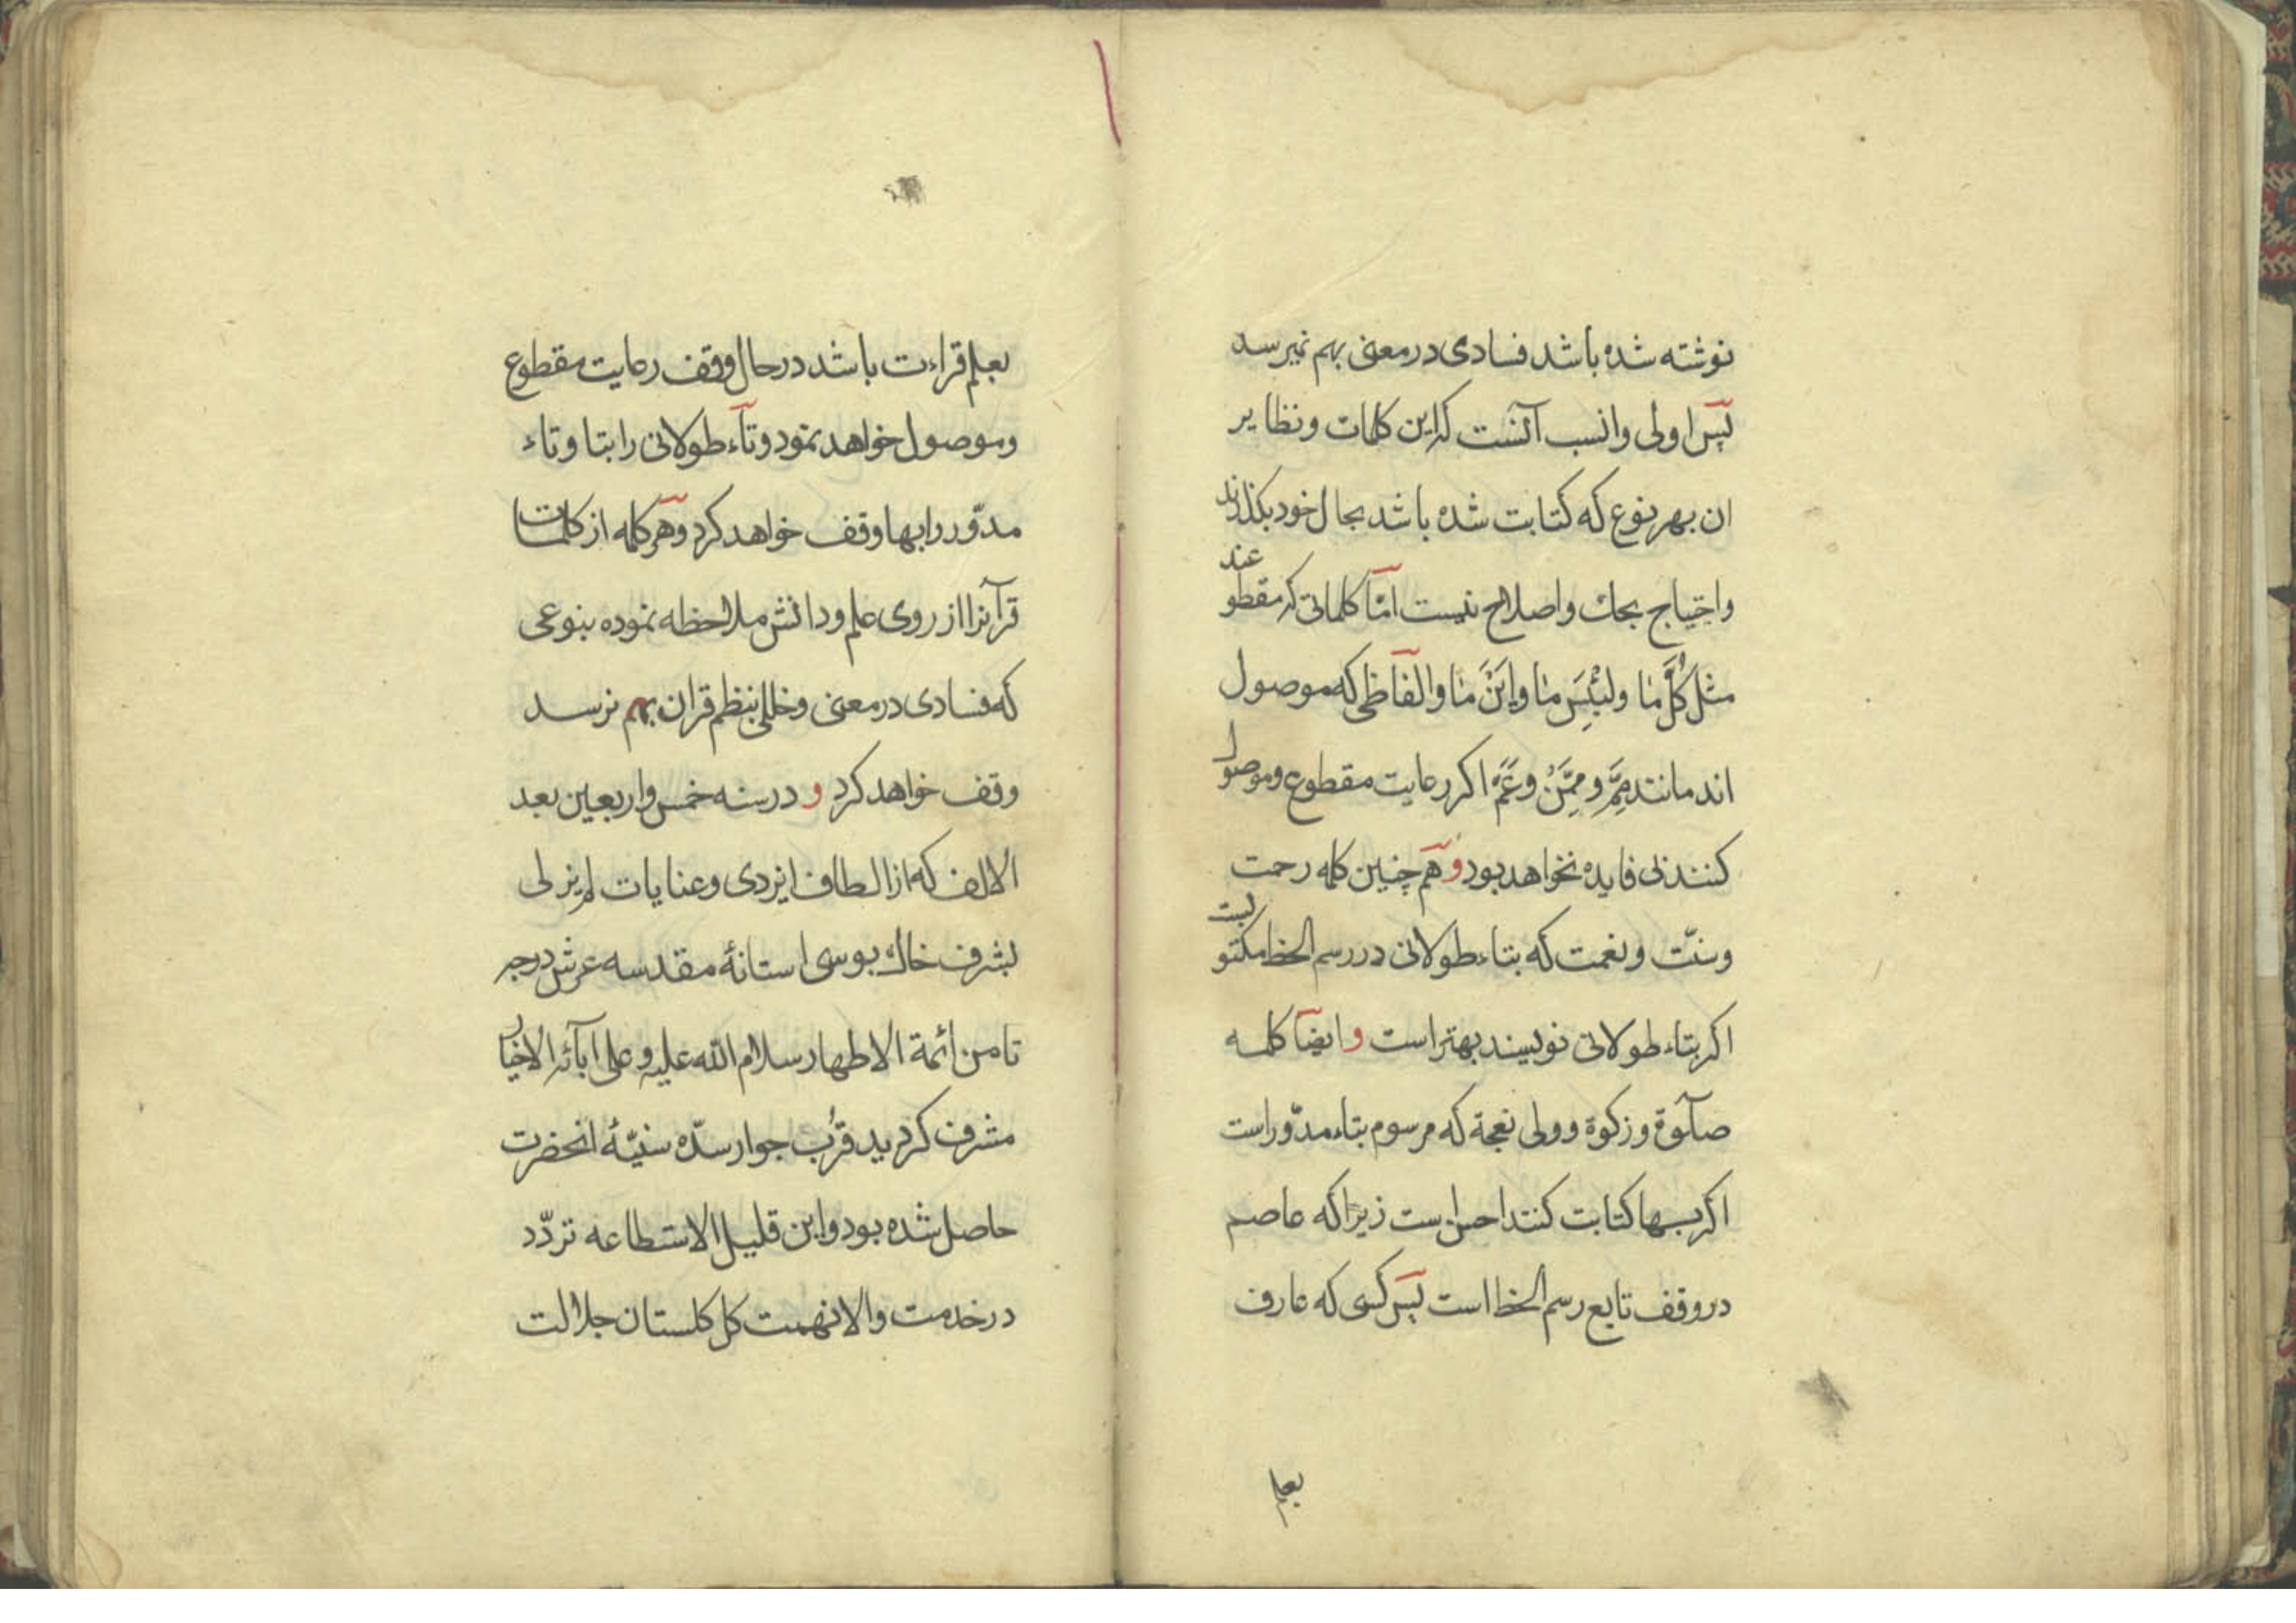 نوشته شده باشد فسادی در معنی بهم نمیرسد
پس اولی وانسب آنست که این کلمات ونظایر
ان بهر نوع که کتابت شده باشد بحال خود بکذارند
واحتیاج بحك واصلاح نیست امّا کلماتی که مقطوعند
مثل کُلَّ مٰا ولبِئْسَ مٰا واَیْنَ مٰا والفاظی که موصول
اند مانند مِمَّ ومِمَّنْ وعَمَّ اکر رعایت مقطوع وموصول
کنند بی فایده نخواهد بود و هم چنین کلمه رحمت
وسنّت ونعمت که بتاء طولانی در رسم الخط مکتوبست
اکر بتاء طولانی نویسند بهتر است و ایضا کلمه
صلوة وزکوة وولی نعجة که مرسوم بتاء مدوّر است
اکر بها کتابت کنند احسن است زیرا که عاصم
در وقف تابع رسم الخط است پس کسی که عارف
بعلم
بعلم قراءت باشد در حال وقف رعایت مقطوع
وموصول خواهد نمود وتآء طولانی را بتا وتاء
مدوّر را بها وقف خواهد کرد وهر کلمه از کلمات
قرآنرا از روی علم ودانش ملاحظه نموده بنوعی
که فسادی در معنی وخللی بنظم قران بهم نرسد
وقف خواهد کرد و در سنه خمس واربعین بعد
الالف که از الطاف ایزدی وعنایات لم یزلی
بشرف خاك بوسی استانهٔ مقدسه عرش درجه
ثامن ائمة الاطهار سلام الله علیه وعلی آبائه الاخیار
مشرف کردید قرُب جوار سدّه سنیّهٔ انحضرت
حاصل شده بود واین قلیل الاستطاعه تردّد
در خدمت والانهمت کل کلستان جلالت